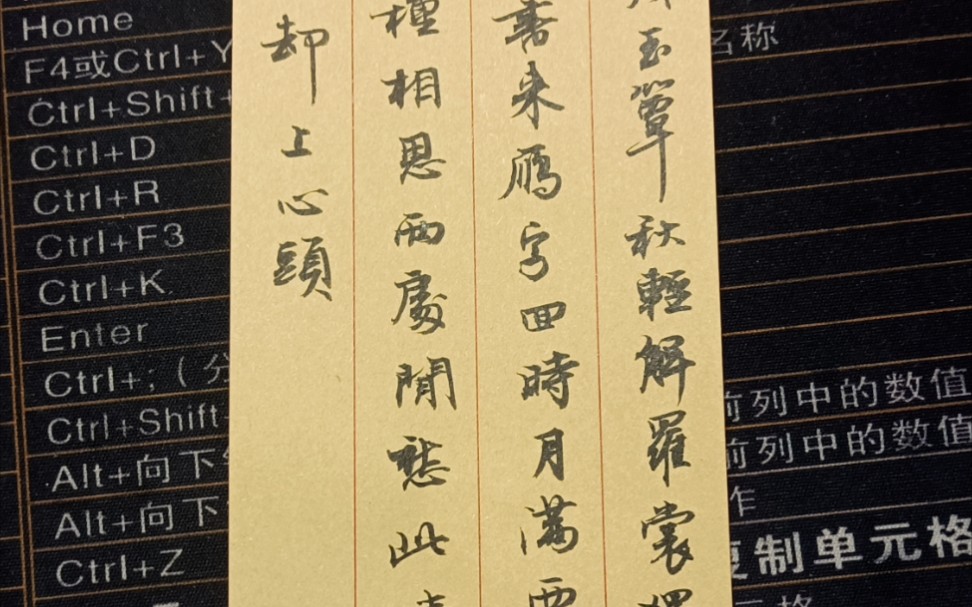 玉簟秋輕解羅裳
書来鴈字回時月滿西
種相思兩處閒愁此
却上心頭
Home
F4或Ctrl+Y
Ctrl+Shift+
Ctrl+D
Ctrl+R
Ctrl+F3
Ctrl+K
Enter
Ctrl+;（分
Ctrl+Shift+
Alt+向下
Alt+向下
Ctrl+Z
名称
前列中的数值
前列中的数值
作
复制单元格
元格